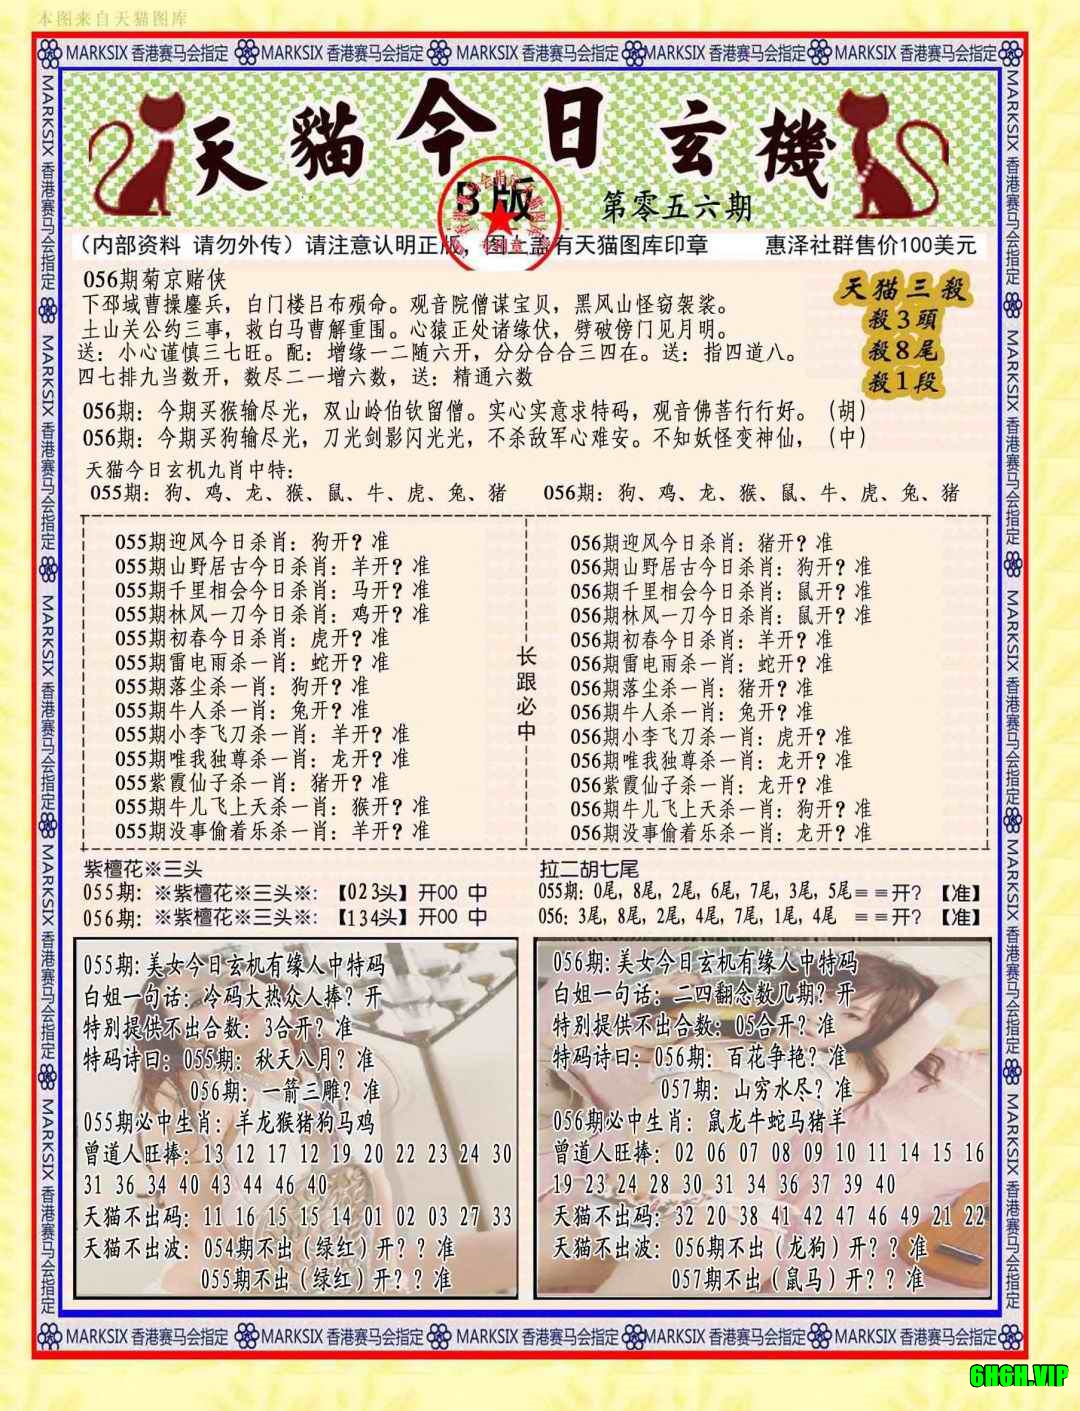 本图来自天猫图库
MARKSIX 香港赛马会指定 MARKSIX 香港赛马会指定 MARKSIX 香港赛马会指定 MARKSIX 香港赛马会指定 MARKSIX 香港赛马会指定
天貓今日玄機
B版
第零五六期
（内部资料 请勿外传）请注意认明正版，图上盖有天猫图库印章 惠泽社群售价100美元
056期菊京赌侠
下邳城曹操鏖兵，白门楼吕布殒命。观音院僧谋宝贝，黑风山怪窃袈裟。
土山关公约三事，救白马曹解重围。心猿正处诸缘伏，劈破傍门见月明。
送：小心谨慎三七旺。配：增缘一二随六开，分分合合三四在。送：指四道八。
四七排九当数开，数尽二一增六数，送：精通六数
天猫三殺
殺3頭
殺8尾
殺1段
056期：今期买猴输尽光，双山岭伯钦留僧。实心实意求特码，观音佛菩行行好。（胡）
056期：今期买狗输尽光，刀光剑影闪光光，不杀敌军心难安。不知妖怪变神仙，（中）
天猫今日玄机九肖中特：
055期：狗、鸡、龙、猴、鼠、牛、虎、兔、猪 056期：狗、鸡、龙、猴、鼠、牛、虎、兔、猪
055期迎风今日杀肖：狗开？准
055期山野居古今日杀肖：羊开？准
055期千里相会今日杀肖：马开？准
055期林风一刀今日杀肖：鸡开？准
055期初春今日杀肖：虎开？准
055期雷电雨杀一肖：蛇开？准
055期落尘杀一肖：狗开？准
055期牛人杀一肖：兔开？准
055期小李飞刀杀一肖：羊开？准
055期唯我独尊杀一肖：龙开？准
055紫霞仙子杀一肖：猪开？准
055期牛儿飞上天杀一肖：猴开？准
055期没事偷着乐杀一肖：羊开？准
长跟必中
056期迎风今日杀肖：猪开？准
056期山野居古今日杀肖：狗开？准
056期千里相会今日杀肖：鼠开？准
056期林风一刀今日杀肖：鼠开？准
056期初春今日杀肖：羊开？准
056期雷电雨杀一肖：蛇开？准
056期落尘杀一肖：猪开？准
056期牛人杀一肖：兔开？准
056期小李飞刀杀一肖：虎开？准
056期唯我独尊杀一肖：龙开？准
056紫霞仙子杀一肖：龙开？准
056期牛儿飞上天杀一肖：狗开？准
056期没事偷着乐杀一肖：龙开？准
紫檀花※三头
055期：※紫檀花※三头※：【023头】开00 中
056期：※紫檀花※三头※：【134头】开00 中
拉二胡七尾
055期：0尾，8尾，2尾，6尾，7尾，3尾，5尾==开？【准】
056：3尾，8尾，2尾，4尾，7尾，1尾，4尾 ==开？【准】
055期：美女今日玄机有缘人中特码
白姐一句话：冷码大热众人捧？开
特别提供不出合数：3合开？准
特码诗曰：055期：秋天八月？准
056期：一箭三雕？准
055期必中生肖：羊龙猴猪狗马鸡
曾道人旺捧：13 12 17 12 19 20 22 23 24 30
31 36 34 40 43 44 46 40
天猫不出码：11 16 15 15 14 01 02 03 27 33
天猫不出波：054期不出（绿红）开？？准
055期不出（绿红）开？？准
056期：美女今日玄机有缘人中特码
白姐一句话：二四翻念数几期？开
特别提供不出合数：05合开？准
特码诗曰：056期：百花争艳？准
057期：山穷水尽？准
056期必中生肖：鼠龙牛蛇马猪羊
曾道人旺捧：02 06 07 08 09 10 11 14 15 16
19 23 24 28 30 31 34 36 37 39 40
天猫不出码：32 20 38 41 42 47 46 49 21 22
天猫不出波：056期不出（龙狗）开？？准
057期不出（鼠马）开？？准
MARKSIX 香港赛马会指定 MARKSIX 香港赛马会指定 MARKSIX 香港赛马会指定 MARKSIX 香港赛马会指定 MARKSIX 香港赛马会指定
MARKSIX 香港赛马会指定 MARKSIX 香港赛马会指定 MARKSIX 香港赛马会指定 MARKSIX 香港赛马会指定 MARKSIX 香港赛马会指定
MARKSIX 香港赛马会指定 MARKSIX 香港赛马会指定 MARKSIX 香港赛马会指定 MARKSIX 香港赛马会指定 MARKSIX 香港赛马会指定
6H6H.VIP